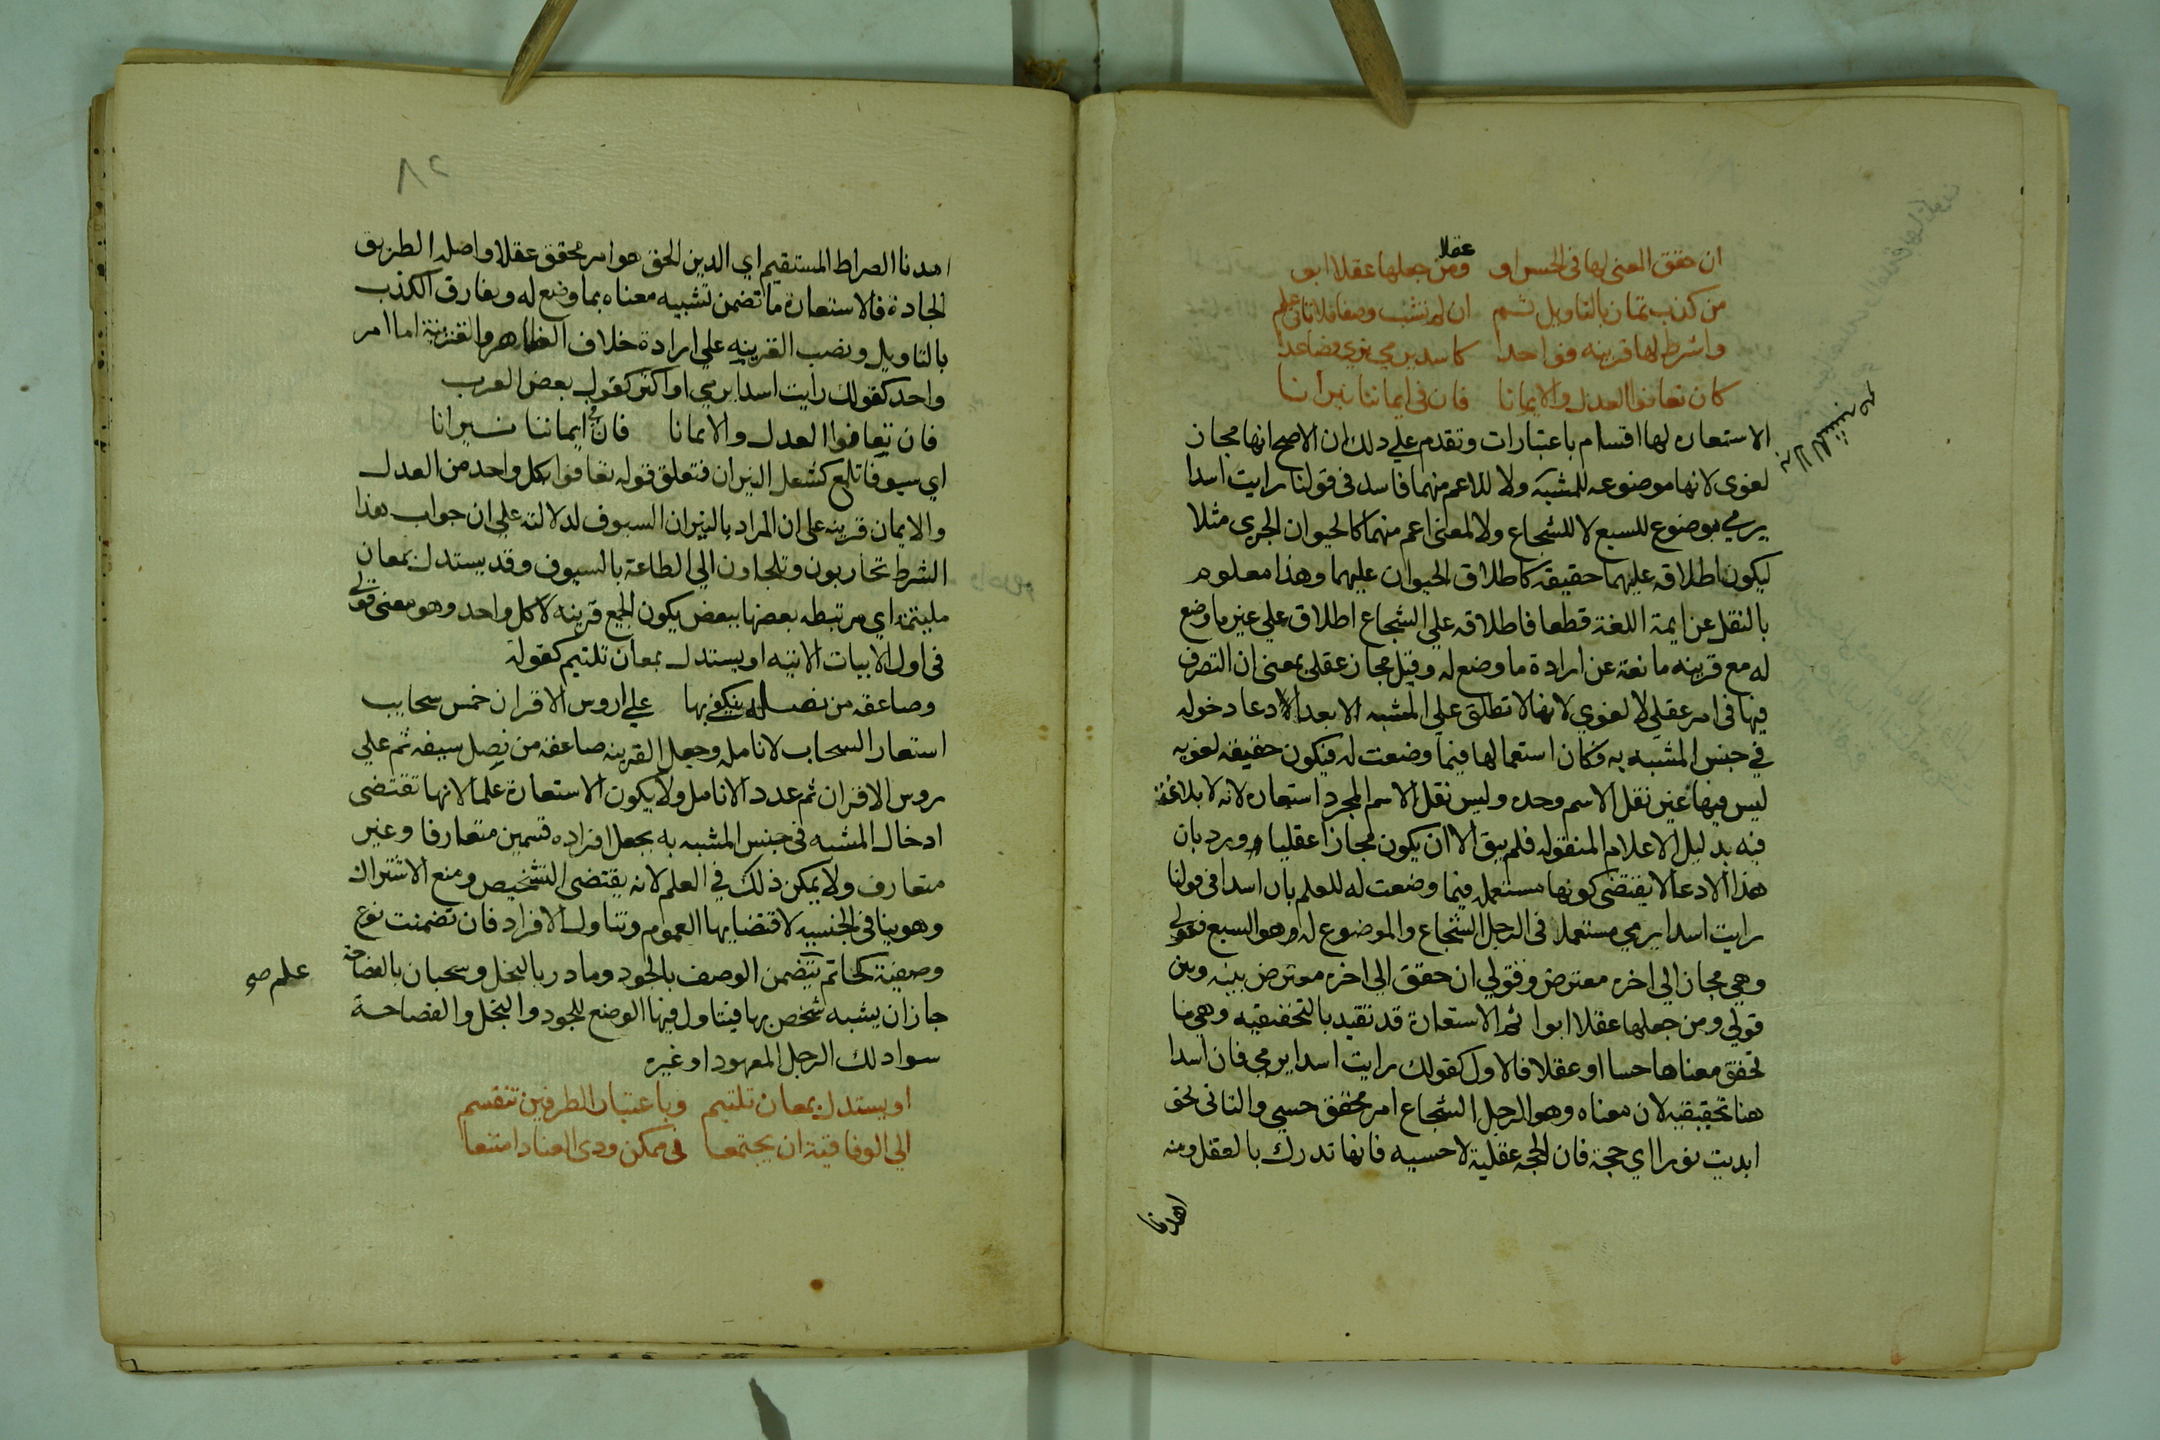 ان حقق المعنى لها في الحس او عقلا ومن جعلها عقلا ابو
من كذب تمان بالتاويل ثم ان لم تشب وصفا فلا تاتي علم
واشرط لها قرينه فواحدا كاسد يرمي يري فصاعدا
كان تعافوا العدل والايمانا فان في ايماننا نيرانا
الاستعاره لها اقسام باعتبارات وتقدم علي ذلك ان الاصح انها مجاز
به لا للمشبه صح
لغوى لانها موضوعه للمشبه ولا للاعم منهما فاسد في قولنا رايت اسدا
يرمي موضوع للسبع لا للشجاع ولا لمعنى اعم منهما كالحيوان الجرى مثلا
ليكون اطلاقه عليهما حقيقه كاطلاق الحيوان عليهما وهذا معلوم
بالنقل عن ايمة اللغة قطعا فاطلاقه علي الشجاع اطلاق علي غير ما وضع
له مع قرينه مانعة عن ارادة ما وضع له وقيل مجاز عقلي بمعنى ان التصرف
فيها في امر عقلي لا لغوي لانها لا تطلق علي المشبه الا بعد الادعا دخوله
في جنس المشبه به فكان استعمالها فيما وضعت له فيكون حقيقه لغويه
ليس فيها غير نقل الاسم وحده وليس نقل الاسم المجرد استعاره لانه لا بلاغة
فيه بدليل الاعلام المنقوله فلم يبق الا ان يكون مجازا عقليا ورد بان
هذا الادعا لا يقتضى كونها مستعمله فيما وضعت له للعلم بان اسدا في قولنا
رايت اسدا يرمي مستعمل في الرجل الشجاع والموضوع له هو السبع فقولي
وهي مجاز الي اخره معترض وقولي ان حقق الي اخره معترض بينه وبين
قولي ومن جعلها عقلا ابوا ثم الاستعارة قد تقيد بالتحقيقيه وهي ما
تحقق معناها حسا او عقلا فالاول كقولك رايت اسدا يرمي فان اسدا
هنا تحقيقيه لان معناه وهو الرجل الشجاع امر محقق حسي والثاني نحو
ابديت نورا اي حجة فان الحجه عقلية لا حسيه فانها تدرك بالعقل ومنه
اهدنا
٨٢
اهدنا الصراط المستقيم اي الدين الحق هو امر محقق عقلا واصله الطريق
الجادة فالاستعارة ما تضمن تشبيه معناه بما وضع له ويفارق الكذب
بالتاويل ونصب القرينه علي ارادة خلاف الظاهر والقرينة اما امر
واحد كقولك رايت اسدا يرمي او اكثر كقول بعض العرب
فان تعافوا العدل والايمانا فان في ايماننا نيرانا
اي سيوفا تلمع كشعل النيران فتعلق قوله تعافوا بكل واحد من العدل
والايمان قرينه على ان المراد بالنيران السيوف لدلالته علي ان جواب هذا
الشرط تحاربون وتلجاون الي الطاعة بالسيوف وقد يستدل بمعان
ملتيمة اي مرتبطه بعضها ببعض يكون الجميع قرينه لا كل واحد وهو معنى قولي
في اول الابيات الاتيه او يستدل بمعان تلتيم كقوله
وصاعقه من نصله ينكفي بها علي اروس الاقران خمس سحايب
استعار السحاب لانامله وجعل القرينه صاعقة من نصل سيفه ثم علي
روس الاقران ثم عدد الانامل ولا يكون الاستعارة علما لانها تقتضى
ادخال المشبه في جنس المشبه به بجعل افراده قسمين متعارفا وغير
متعارف ولا يمكن ذلك في العلم لانه يقتضي التشخيص ومنع الاشتراك
وهو ينافي الجنسيه لاقتضايها العموم وتناول الافراد فان تضمنت نوع
وصفية كحاتم يتضمن الوصف بالجود ومادر بالبخل وسحبان بالفصاحة
علم صح
جاز ان يشبه شخص بها فيتاول فيها الوضع للجود والبخل والفصاحة
سوا ذلك الرجل المعهود او غيره
او يستدل بمعان تلتيم وباعتبار الطرفين تنقسم
الي الوفاقية ان يجتمعا في ممكن وذى العناد امتنعا